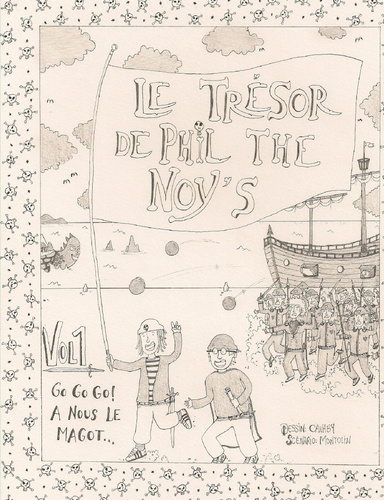 LE TRÉSOR
DE PHIL THE
NOY'S
VOL 1
GO GO GO!
A NOUS LE
MAGOT...
DESSIN CAUHEY
SCENARIO: MONTOLIN